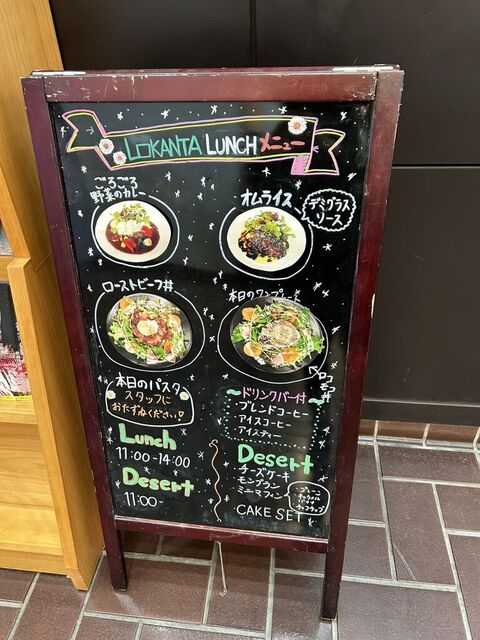 LOKANTA LUNCH メニュー
ごろごろ
野菜のカレー
オムライス
デミグラス
ソース
ローストビーフ丼
本日のワンプレート
ロコモコ丼
本日のパスタ
スタッフに
おたずねください!
~ドリンクバー付~
ブレンドコーヒー
アイスコーヒー
アイスティー
Lunch
11:00-14:00
Desert
11:00-
Desert
チーズケーキ
モンブラン
ミニマフィン
・プレーン
CAKE SET